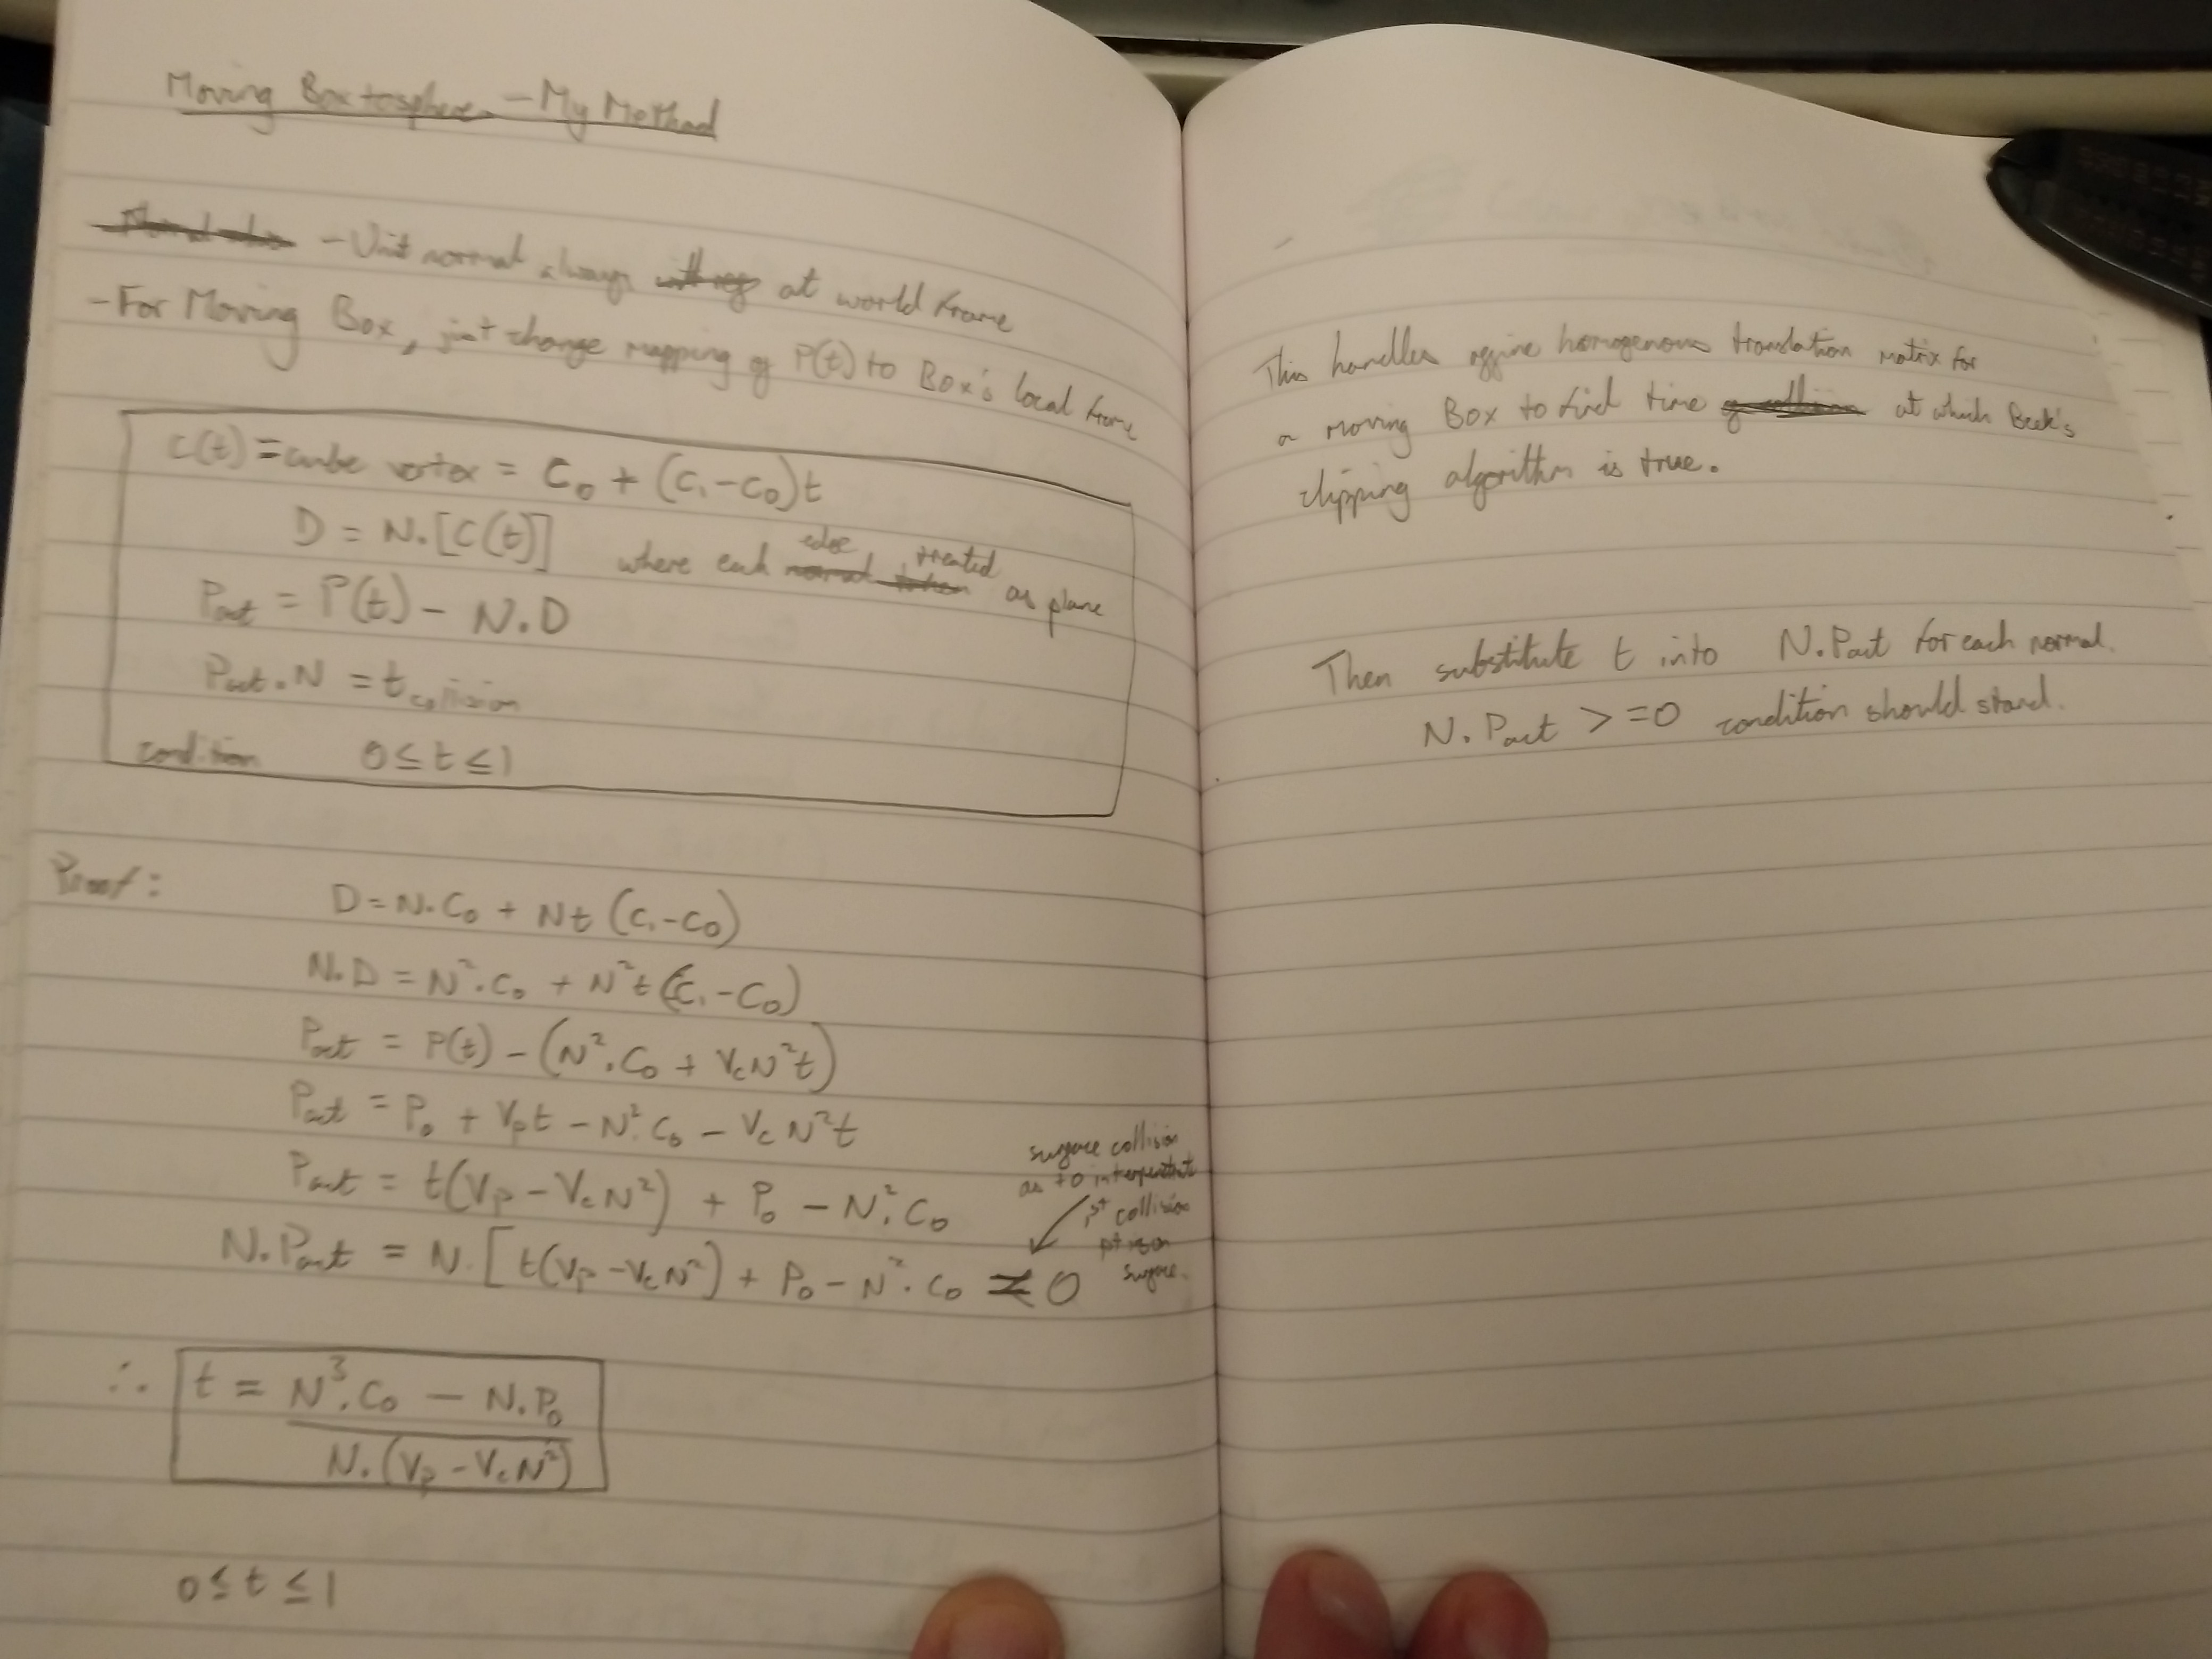 Moving Box to sphere - My Method
- Unit normal always at world frame
- For Moving Box, just change mapping of P(t) to Box's local frame
C(t) = cube vertex = C₀ + (C₁-C₀)t
D = N.[C(t)] where each edge treated as plane
Pact = P(t) - N.D
Pact.N = t collision
condition 0 ≤ t ≤ 1
Proof:
D = N.C₀ + Nt (C₁-C₀)
N.D = N².C₀ + N²t (C₁-C₀)
Pact = P(t) - (N².C₀ + VcN²t)
Pact = P₀ + Vpt - N².C₀ - VcN²t
Pact = t(Vp - VcN²) + P₀ - N².C₀
N.Pact = N.[t(Vp - VcN²) + P₀ - N².C₀ = 0
surface collision
as to
1st collision
pt is on
surface.
∴ t = N³.C₀ - N.P₀
N.(Vp - VcN²)
0 ≤ t ≤ 1
This handles affine homogenous translation matrix for
a moving Box to find time at which Beck's
clipping algorithm is true.
Then substitute t into N.Pact for each normal.
N.Pact >=0 condition should stand.